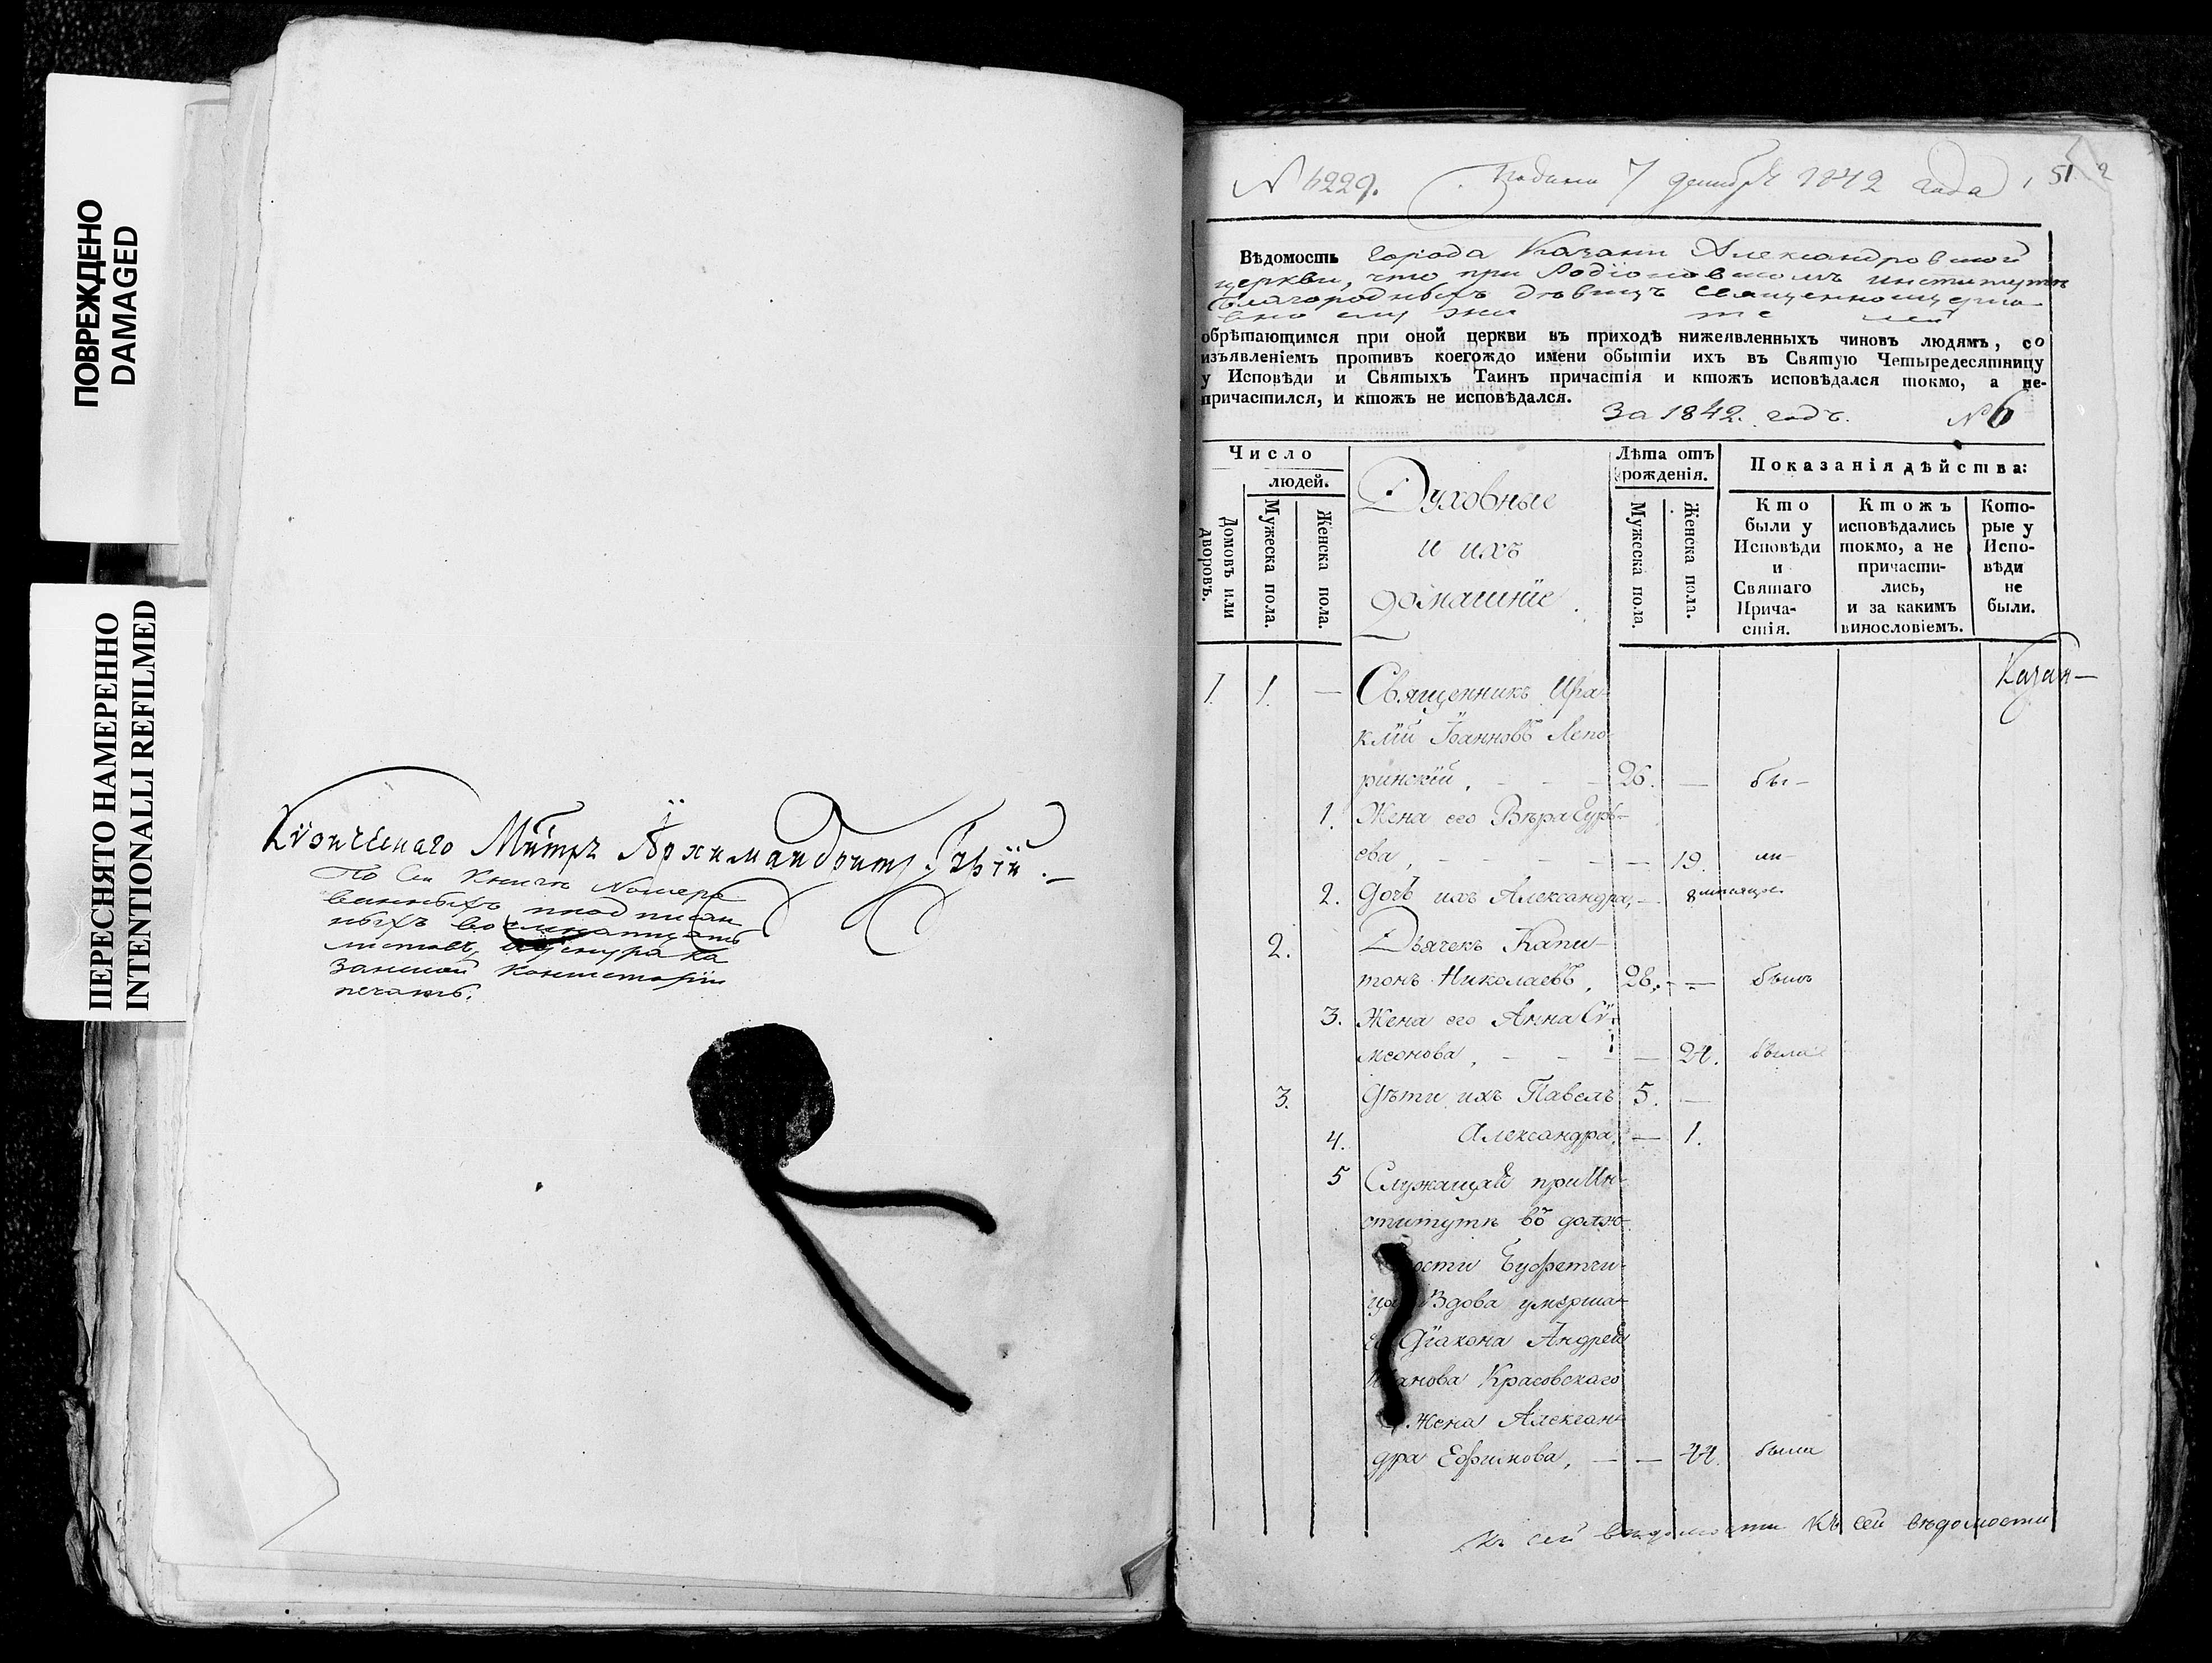 ПОВРЕЖДЕНО
DAMAGED
ПЕРЕСНЯТО НАМЕРЕННО
INTENTIONALLI REFILMED
Архимандритъ
По сей книгѣ номеро
ванныхъ
ныхъ
листовъ, ка
занской консисторіи
печать.
N 6229. Подана 7 декабря 1842 года 51
Вѣдомость города Казани Александровской
церкви, что при Родіоновскомъ институтѣ
благородныхъ дѣвицъ священноцерко
вно слу жи те лей
обрѣтающимся при оной церкви въ приходѣ нижеявленныхъ чиновъ людямъ, со
изъявленіемъ противъ коегождо имени обытіи ихъ въ Святую Четыредесятницу
у Исповѣди и Святыхъ Таинъ причастія и ктожъ исповѣдался токмо, а не-
причастился, и ктожъ не исповѣдался.
За 1842. годъ. N 6
Число
людей.
Домовъ или
дворовъ.
Мужеска пола.
Женска пола.
Духовные
и ихъ
домашніе.
Лѣта отъ
рожденія.
Мужеска пола.
Женска пола.
Показанія дѣйства:
Кто
были у
Исповѣди
и
Святаго
Прича-
стія.
Ктожъ
исповѣдались
токмо, а не
причасти-
лись,
и за какимъ
винословіемъ.
Кото-
рые у
Испо-
вѣди
не
были.
Казан-
1. 1. — Священникъ Ира-
клій Іоанновъ Лепо-
ринскій, — — — 26. — бы-
1. Жена его Вѣра Гурь-
ева, — — — — — 19. ли-
2. Дочь ихъ Александра, — 8 мѣсяцев
2. Дьячекъ Капи-
тонъ Николаевъ, 28. — — былъ
3. Жена его Анна Сѵ-
меонова, — — — — 24. была
3. Дѣти ихъ Павелъ 5. —
4. Александра, — 1.
5 Служащая при Ин-
ститутѣ въ долж-
ности Буфетчи-
цы Вдова умерша-
го Діакона Андрея
Иванова Красовскаго
Жена Алексан-
дра Ефимова, — — 44. была
Къ сей вѣдомости Къ сей вѣдомости